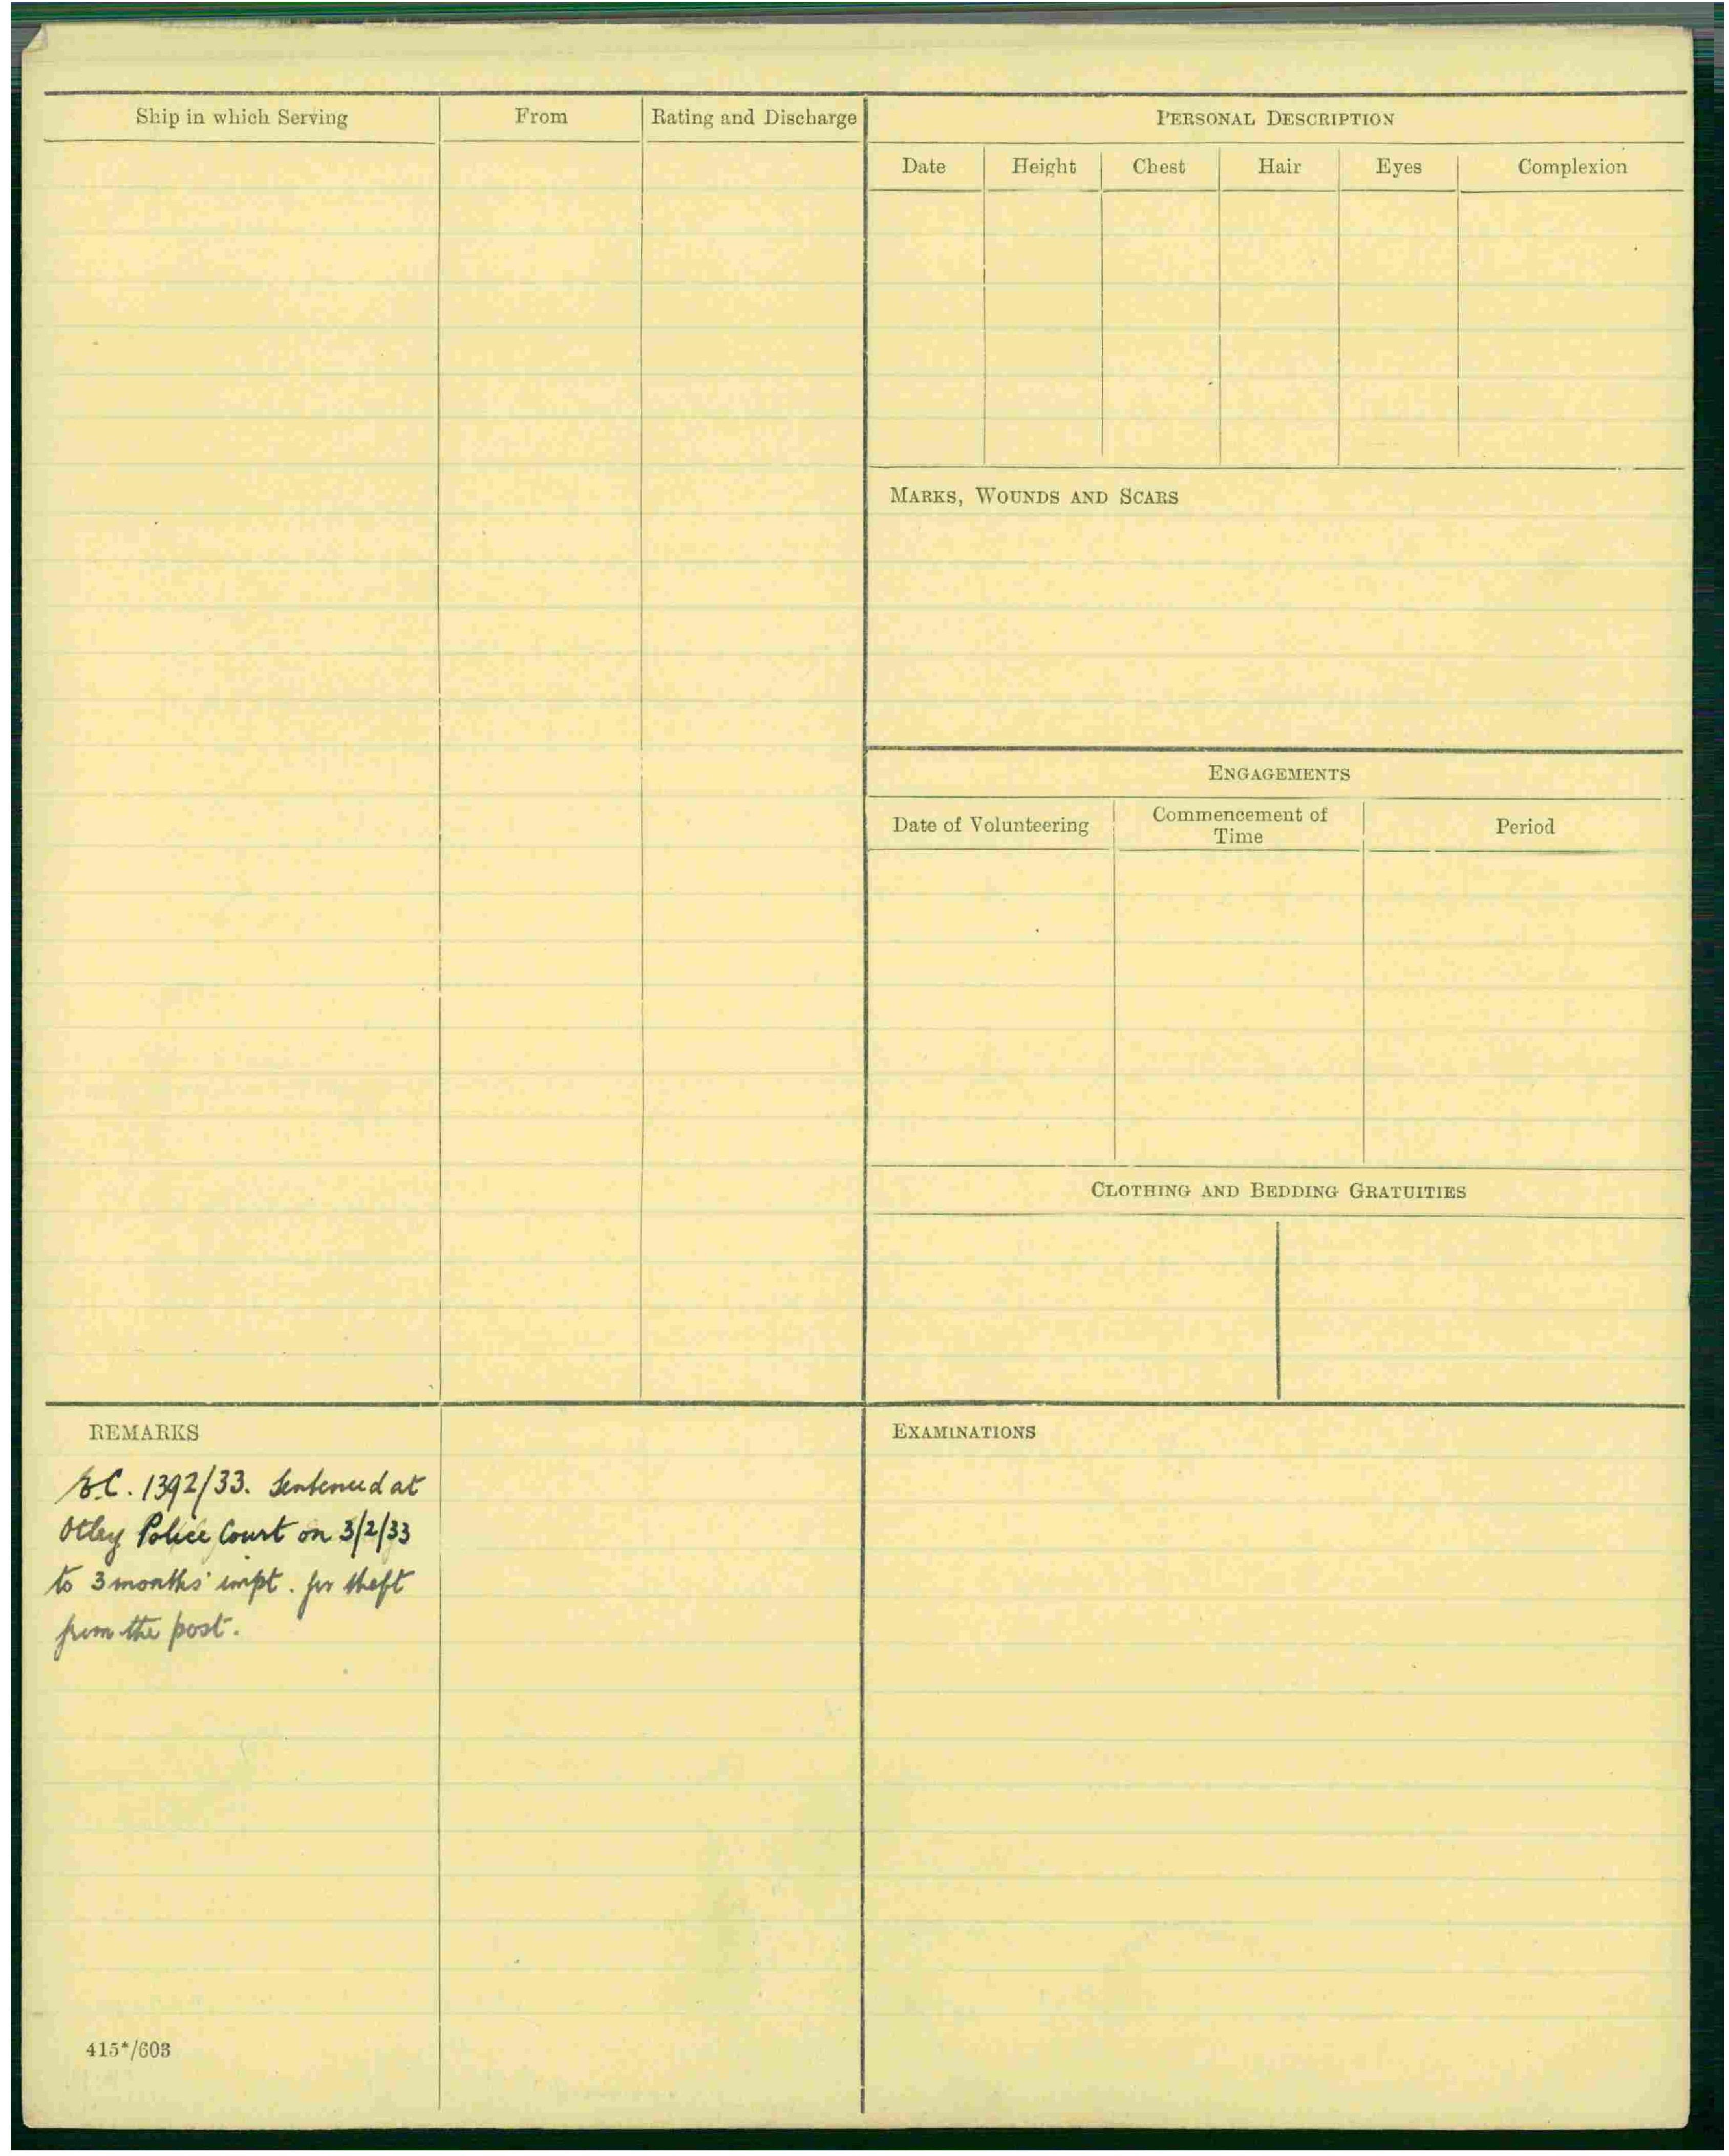 Ship in which Serving
From
Rating and Discharge
PERSONAL DESCRIPTION
Date
Height
Chest
Hair
Eyes
Complexion
MARKS, WOUNDS AND SCARS
ENGAGEMENTS
Date of Volunteering
Commencement of
Time
Period
CLOTHING AND BEDDING GRATUITIES
REMARKS
1392/33. Sentenced at
Otley Police Court on 3/2/33
to 3 months' impt. for theft
from the post.
EXAMINATIONS
415*/603